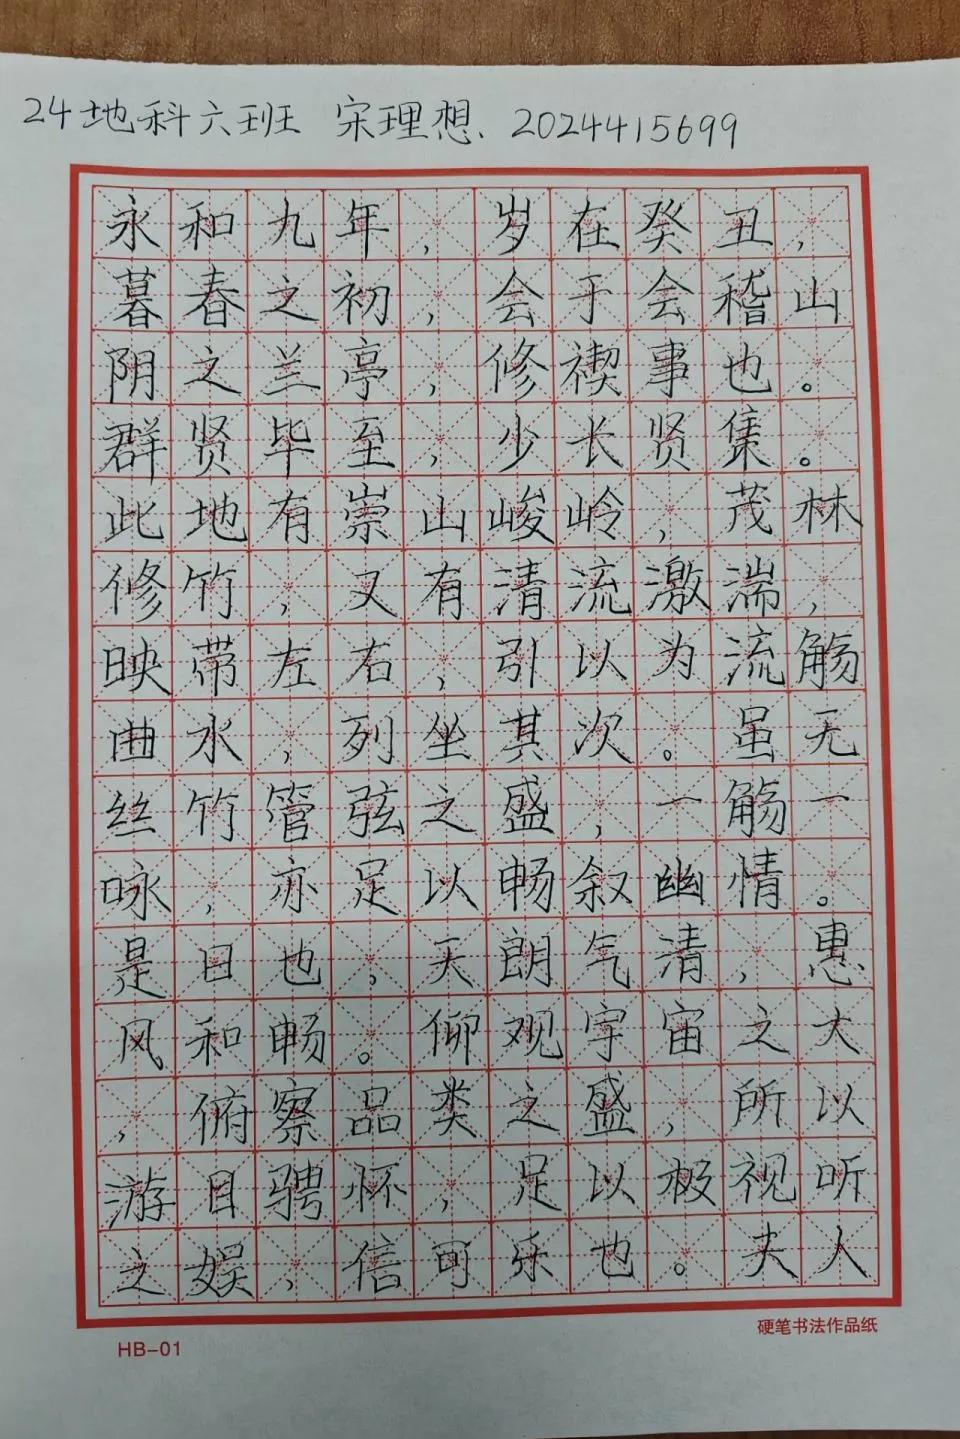 24地科六班 宋理想、2024415699
永和九年，岁在癸丑，
暮春之初，会于会稽山
阴之兰亭，修禊事也。
群贤毕至，少长贤集。
此地有崇山峻岭，茂林
修竹，又有清流激湍，
映带左右，引以为流觞
曲水，列坐其次。虽无
丝竹管弦之盛，一觞一
咏，亦足以畅叙幽情。
是日也，天朗气清，惠
风和畅。仰观宇宙之大
，俯察品类之盛，所以
游目骋怀，足以极视听
之娱，信可乐也。夫人
硬笔书法作品纸
HB-01